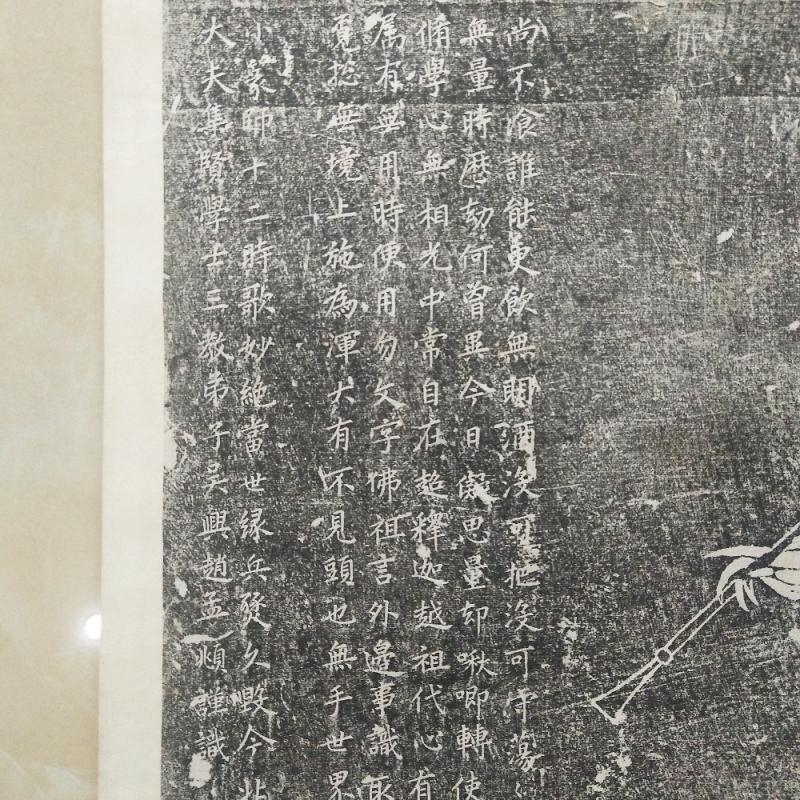 尚不飡誰能更飲無明酒沒可把沒可守蕩
無量時歷劫何曾異今日儗思量却啾唧轉使
脩學心無相光中常自在超釋迦越祖代心有
属有無用時便用勿文字佛祖言外邊事識取
覓揔無境上施為渾大有不見頭也無手世界
小篆師十二時歌妙絶當世緣兵燹久毀今北
大夫集賢學士三教弟子吳興趙孟頫謹識